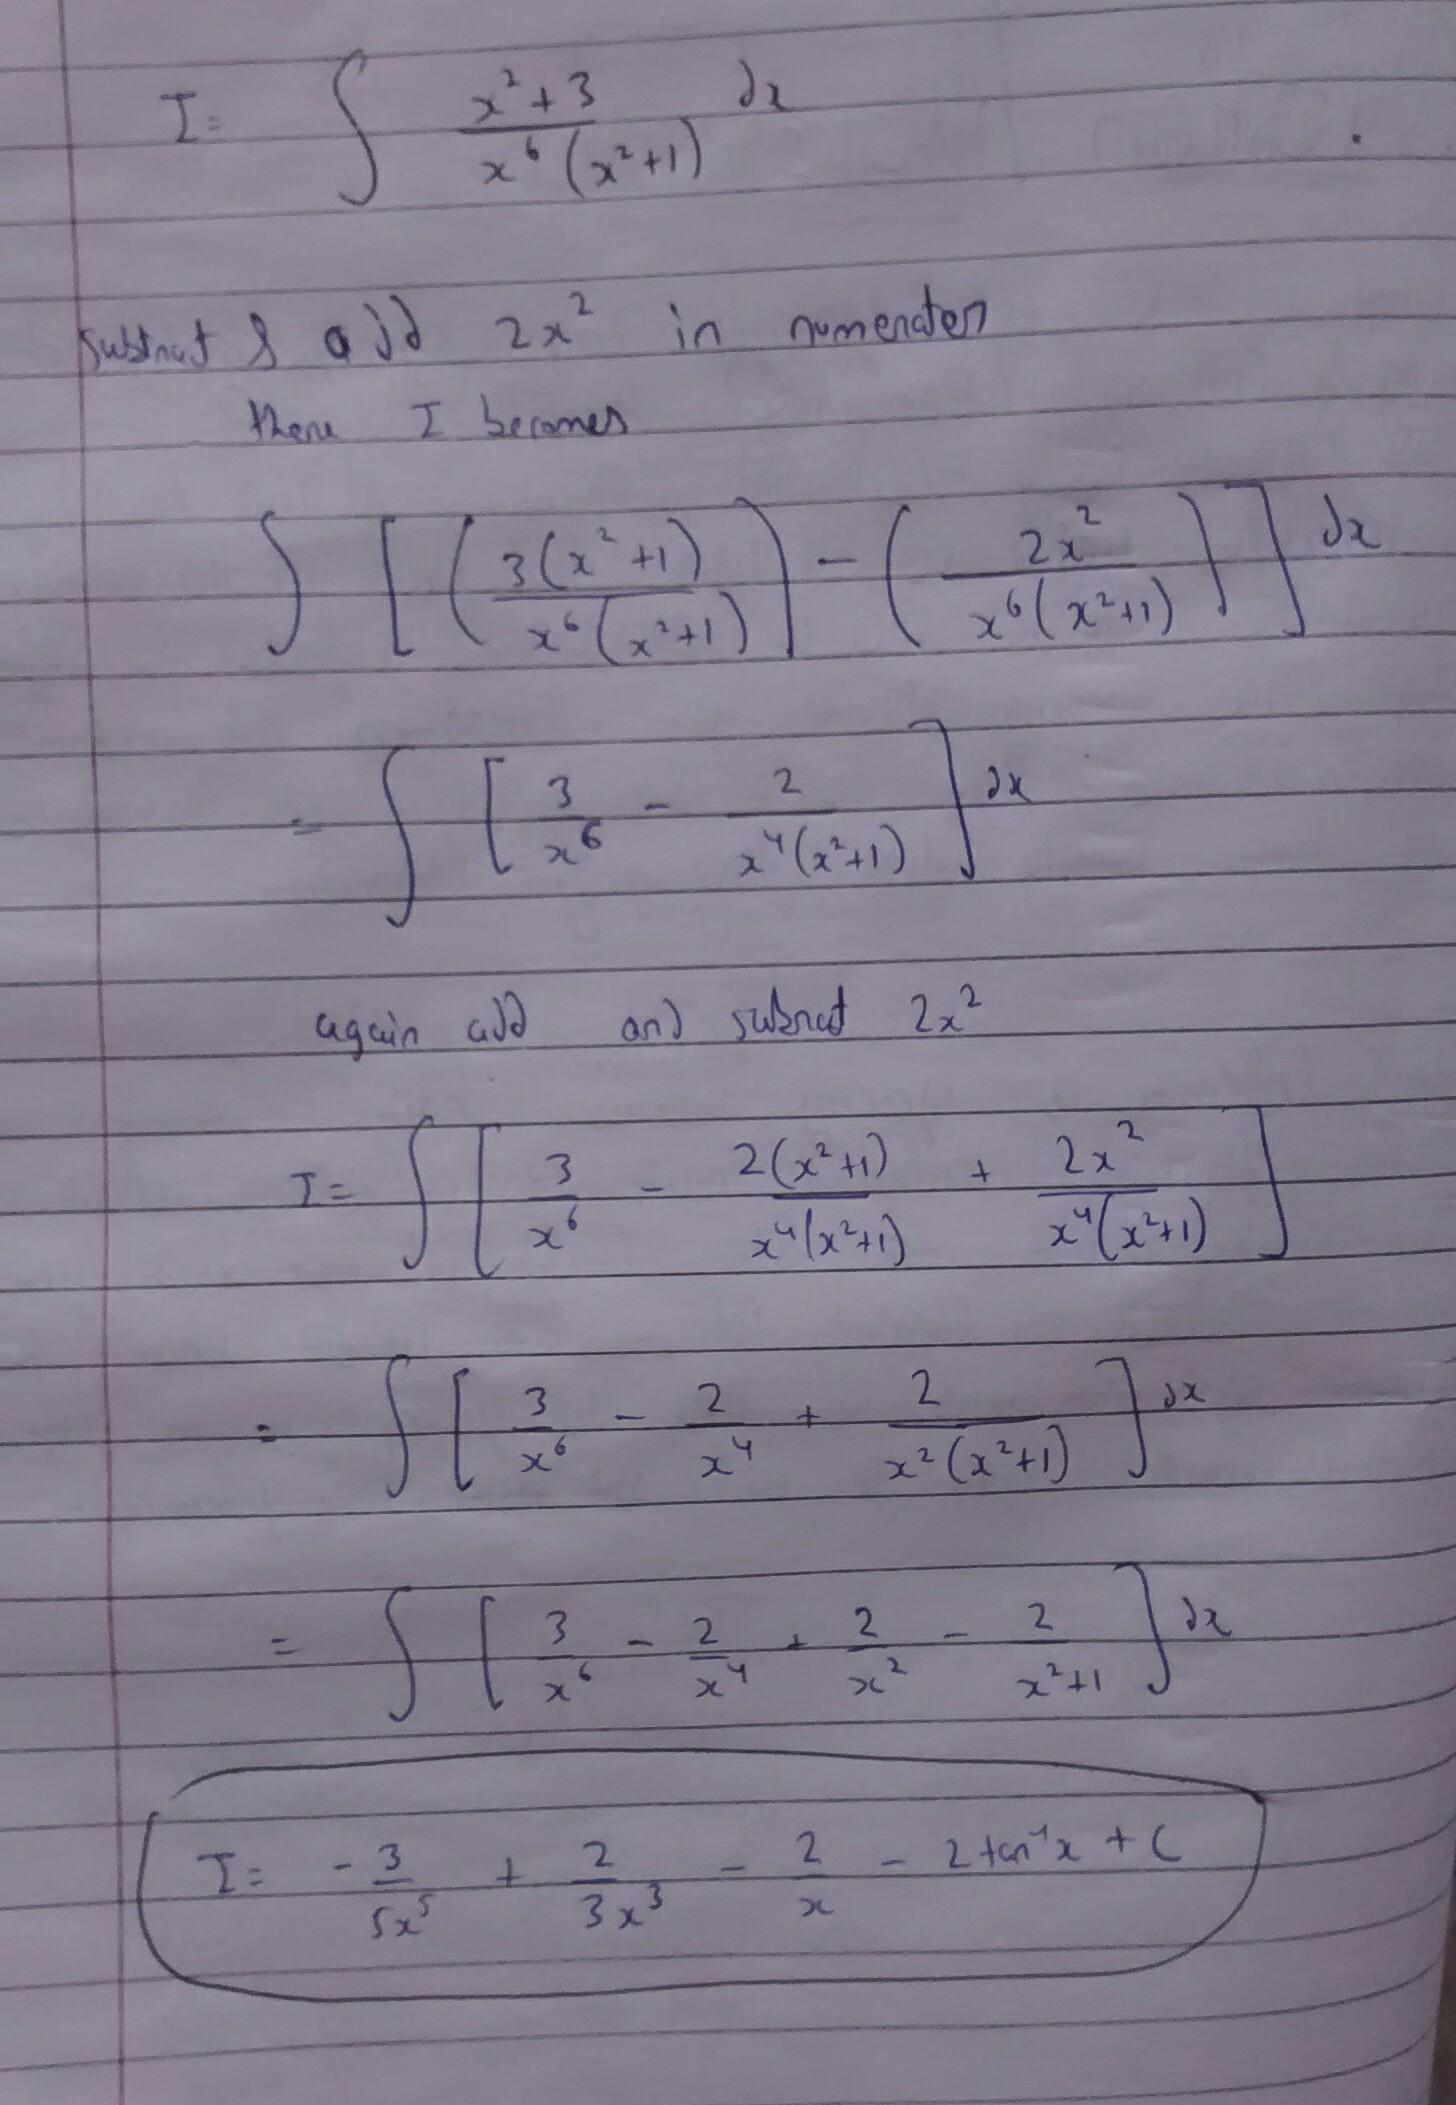 I = ∫ (x² + 3) / (x⁶ (x²+1)) dx
subtract & add 2x² in numerator
there I becomes
∫ [ ( 3(x²+1) / (x⁶(x²+1)) ) − ( 2x² / (x⁶(x²+1)) ) ] dx
= ∫ [ 3/x⁶ − 2 / (x⁴(x²+1)) ] dx
again add and subtract 2x²
I = ∫ [ 3/x⁶ − 2(x²+1) / (x⁴(x²+1)) + 2x² / (x⁴(x²+1)) ]
= ∫ [ 3/x⁶ − 2/x⁴ + 2 / (x²(x²+1)) ] dx
= ∫ [ 3/x⁶ − 2/x⁴ + 2/x² − 2/(x²+1) ] dx
I = −3/(5x⁵) + 2/(3x³) − 2/x − 2 tan⁻¹x + C